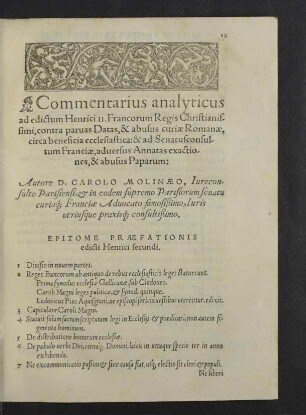 12
Commentarius analyticus
ad edictum Henrici II. Francorum Regis Christianis-
simi, contra paruas Datas, & abusus curiæ Romanæ,
circa beneficia ecclesiastica: & ad Senatusconsul-
tum Franciæ, aduersus Annatas exactio-
nes, & abusus Paparum:
Autore D. CAROLO MOLINÆO, Iurecon-
sulto Parisiensi, & in eodem supremo Parisiorum senatu
curiaque Franciæ Aduocato famosissimo, Iuris
vtriusque praxisque consultissimo.
EPITOME PRÆFATIONIS
edicti Henrici secundi.
1 Diuisio in nouem partes.
2 Reges Francorum ab antiquo de rebus ecclesiasticis leges statuerant.
Prima synodus ecclesiæ Gallicanæ sub Clodoueo.
Caroli Magni leges politicæ, & synodi quinque.
Ludouicus Pius Aquisgrani, ne episcopi pretiosis vestibus vterentur, edixit.
3 Capitulare Caroli Magni.
4 Statuit solam sacram scripturam legi in Ecclesijs & prædicari, non autem fi-
gmenta hominum.
5 De distributione bonorum ecclesiæ.
6 De pabulo verbi Dei, coenaque Domini, laicis in vtraque specie ter in anno
exhibenda.
7 Ne excommunicatio passim & sine causa fiat, vtque electio sit cleri & populi.
Ne liberi